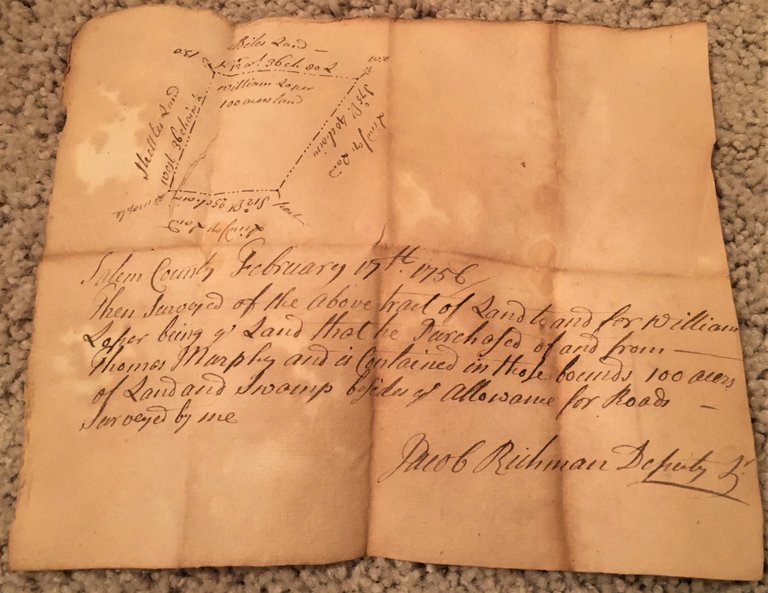 Stiles Land —
W. 36 ch. 80 L
William Loper
100 acers land
Land
36 chains
40 chain
Land
25 chain
Land
Salem County February 17th. 1756
Then Surveyed of the above tract of Land to and for William
Loper being ye Land that he Purchased of and from —
Thomas Murphy and is Contained in those bounds 100 acers
of Land and Swamp besides ye Allowance for Roads —
Surveyed by me
Jacob Richman Deputy Sr